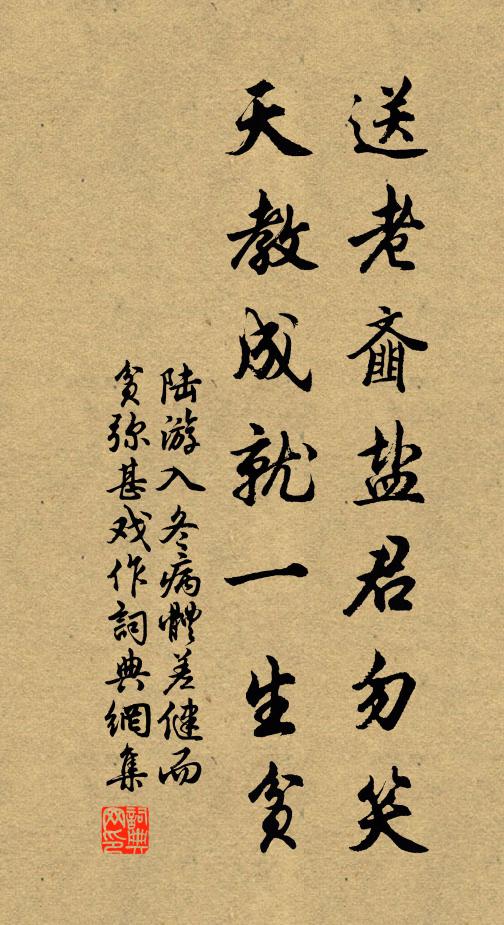 送老齑盐君勿笑
天教成就一生贫
陆游入冬病體差健而
贫弥甚戏作詞典網集
詞典网印